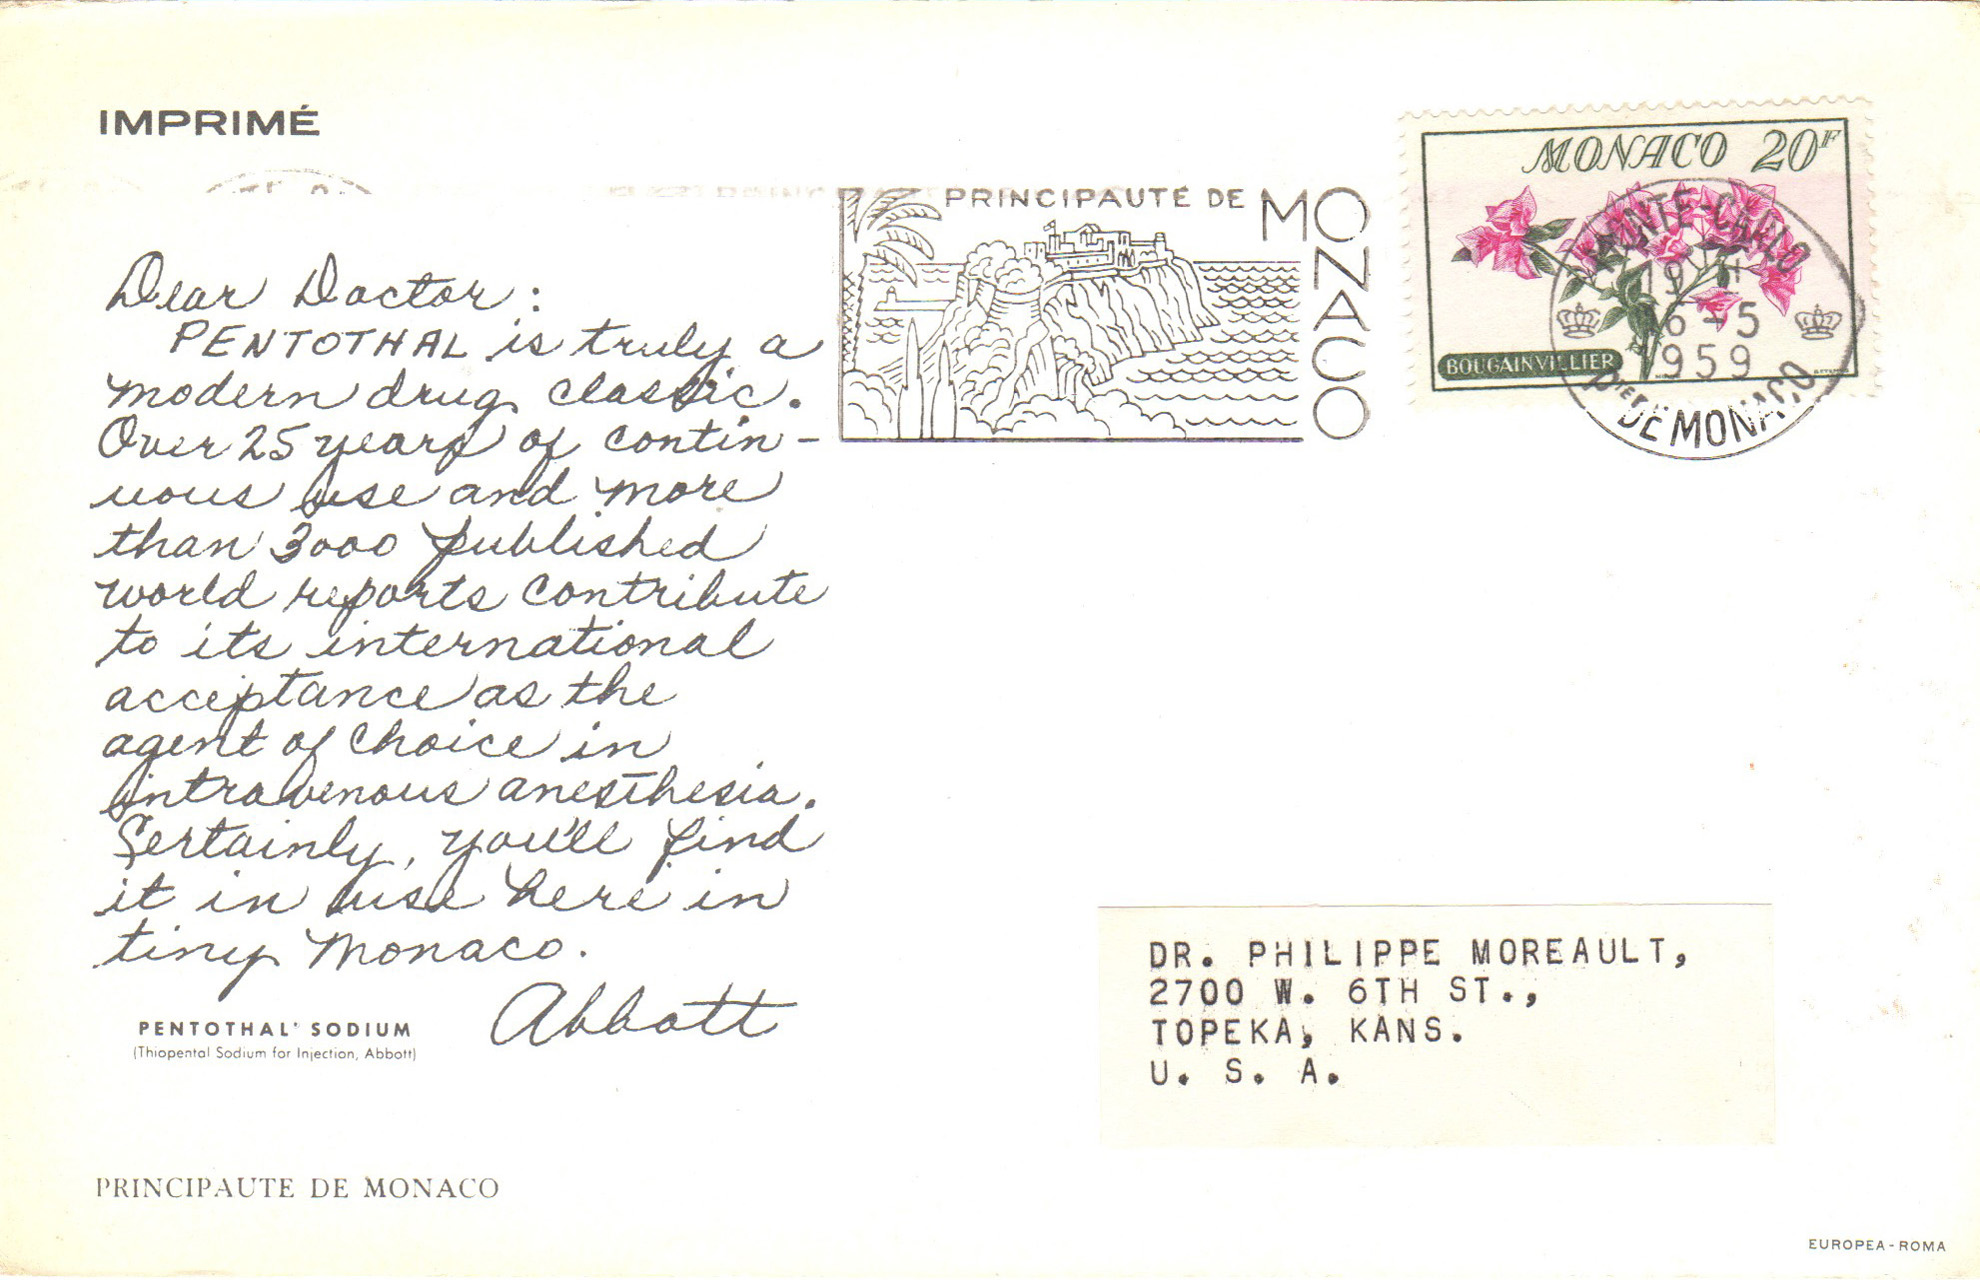 IMPRIMÉ
PRINCIPAUTÉ DE MONACO
MONACO 20F
BOUGAINVILLIER
MONTE-CARLO
19H
26-5
1959
PTÉ DE MONACO
Dear Doctor:
PENTOTHAL is truly a
modern drug classic.
Over 25 years of contin-
uous use and more
than 3000 published
world reports contribute
to its international
acceptance as the
agent of choice in
intravenous anesthesia.
Certainly, you'll find
it in use here in
tiny Monaco.
Abbott
PENTOTHAL® SODIUM
(Thiopental Sodium for Injection, Abbott)
DR. PHILIPPE MOREAULT,
2700 W. 6TH ST.,
TOPEKA, KANS.
U. S. A.
PRINCIPAUTE DE MONACO
EUROPEA-ROMA